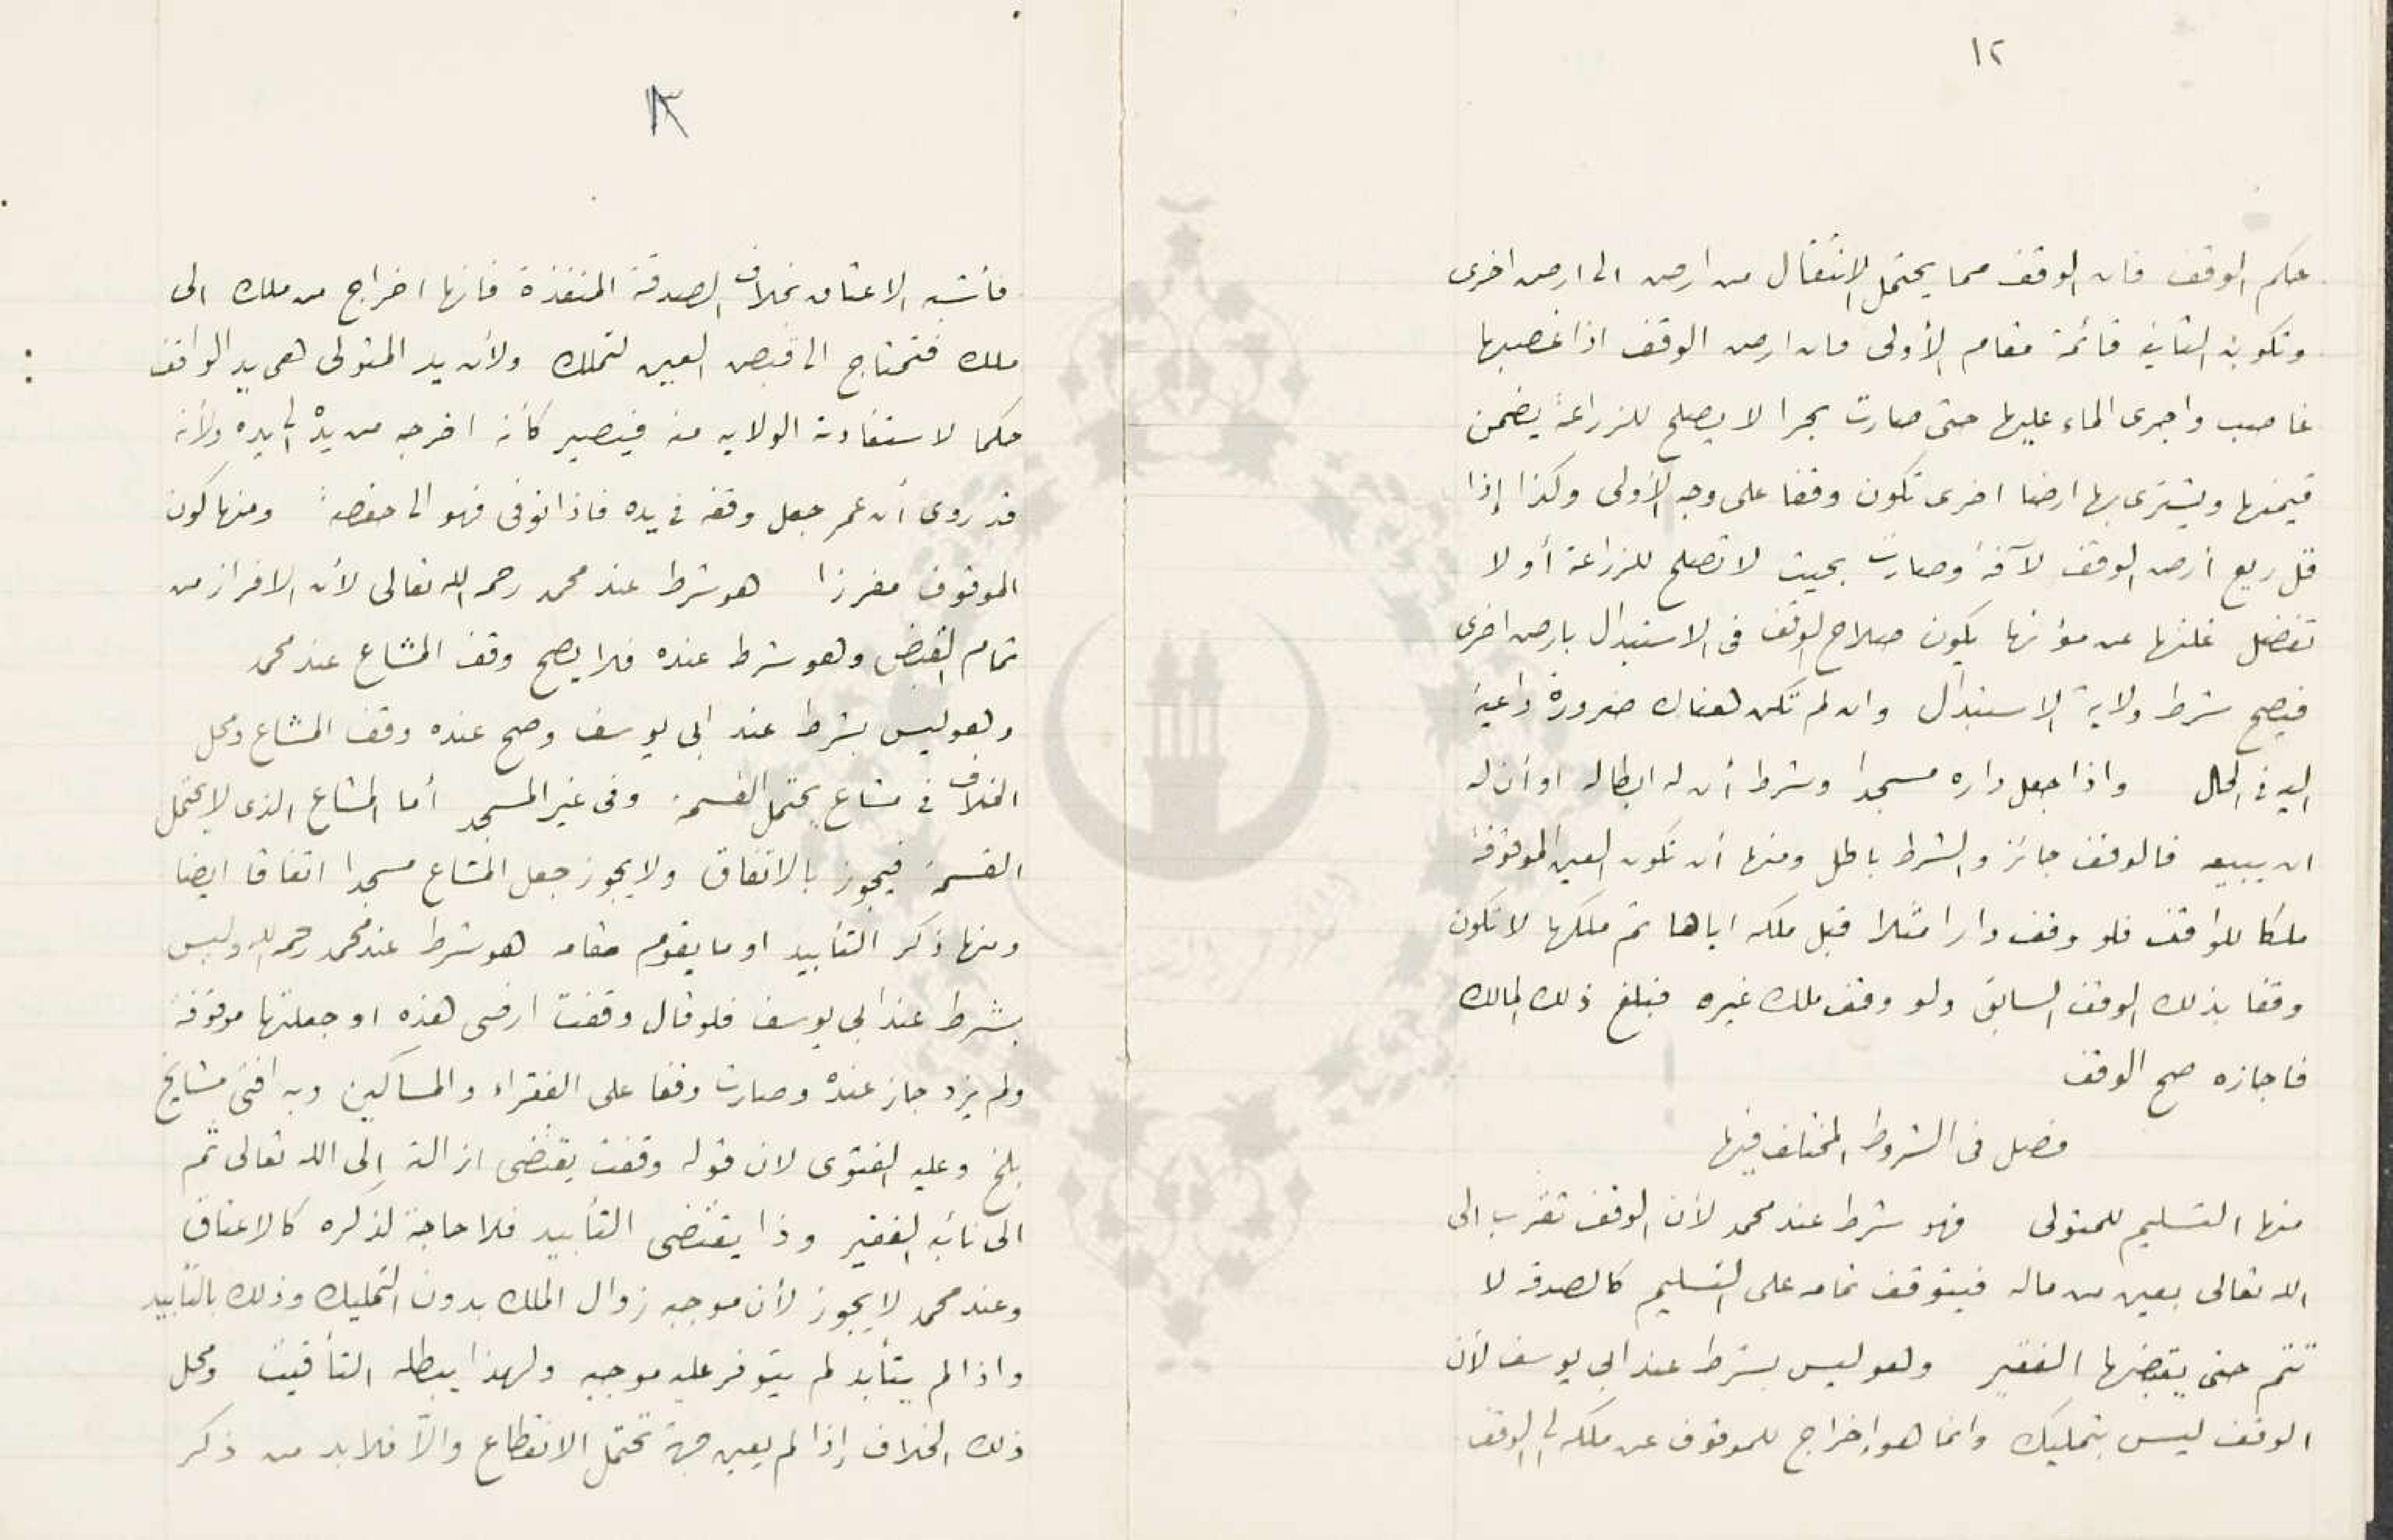 ١٢
حكم الوقف فان الوقف مما يحتمل الانتقال من ارض الى ارض اخرى
وتكون الثانية قائمة مقام الأولى فان ارض الوقف اذا غصبها
غاصب واجرى الماء عليها حتى صارت بحرا لا يصلح للزراعة يضمن
قيمتها ويشترى بها ارضا اخرى تكون وقفا على وجه الأولى وكذا إذا
قل ريع أرض الوقف لآفة وصارت بحيث لا تصلح للزراعة أو لا
تفضل غلتها عن مؤنتها يكون صلاح الوقف فى الاستبدال بارض اخرى
فيصح شرط ولاية الاستبدال وان لم تكن هناك ضرورة داعية
اليه فى الحال واذا جعل داره مسجدا وشرط أن له ابطاله او أن له
ان يبيعه فالوقف جائز والشرط باطل ومنها أن تكون العين الموقوفة
ملكا للواقف فلو وقف دارا مثلا قبل ملكه اياها ثم ملكها لا تكون
وقفا بذلك الوقف السابق ولو وقف ملك غيره فبلغ ذلك المالك
فاجازه صح الوقف
فصل فى الشروط المختلف فيها
منها التسليم للمتولى فهو شرط عند محمد لأن الوقف تقرب الى
الله تعالى بعين من ماله فيتوقف تمامه على التسليم كالصدقة لا
تتم حتى يقبضها الفقير وهو ليس بشرط عند ابي يوسف لأن
الوقف ليس بتمليك وانما هو إخراج للموقوف عن ملكه الى الوقف
١٣
فأشبه الاعتاق بخلاف الصدقة المنفذة فانها اخراج من ملك الى
ملك فتحتاج الى قبض العين لتملك ولأن يد المتولى هى يد الواقف
حكما لاستفادته الولايه منه فيصير كأنه اخرجه من يده الى يده ولأنه
قد روى أن عمر جعل وقفه فى يده فاذا توفى فهو الى حفصة ومنها كون
الموقوف مفرزا هو شرط عند محمد رحمه الله تعالى لأن الافراز من
تمام القبض وهو شرط عنده فلا يصح وقف المشاع عند محمد
وهو ليس بشرط عند ابى يوسف وصح عنده وقف المشاع ومحل
الخلاف فى مشاع يحتمل القسمة وفى غير المسجد أما المشاع الذى لا يحتمل
القسمة فيجوز بالاتفاق ولا يجوز جعل المشاع مسجدا اتفاقا ايضا
ومنها ذكر التأبيد او ما يقوم مقامه هو شرط عند محمد رحمه الله وليس
بشرط عند ابى يوسف فلو قال وقفت ارضى هذه او جعلتها موقوفة
ولم يزد جاز عنده وصارت وقفا على الفقراء والمساكين وبه افتى مشايخ
بلخ وعليه الفتوى لان قوله وقفت يقتضى ازالته إلى الله تعالى ثم
الى نائبه الفقير وذا يقتضى التأبيد فلا حاجة لذكره كالاعتاق
وعند محمد لا يجوز لأن موجبه زوال الملك بدون التمليك وذلك بالتأبيد
واذا لم يتأبد لم يتوفر عليه موجبه ولهذا يبطله التأقيت ومحل
ذلك الخلاف إذا لم يعين جهة تحتمل الانقطاع والّا فلا بد من ذكر